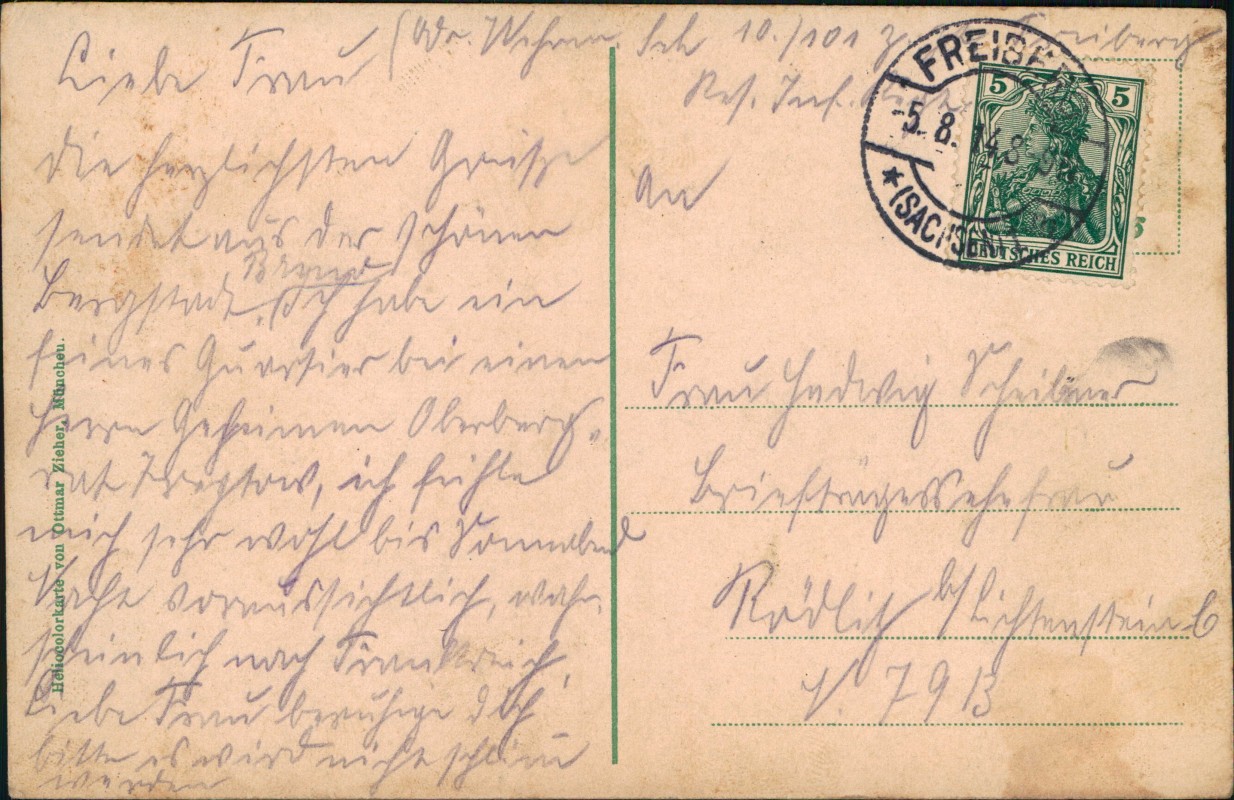 Liebe Frau
die herzlichsten Grüße
sendet aus der schönen
Bergstadt, Ich habe ein
feines Quartier bei einen
Herrn Geheimen Oberberg-
rat Treptow, ich fühle
mich sehr wohl bis Sonnabend
Nacht voraussichtlich, wahr
scheinlich nach Frankreich,
Liebe Frau beruhige dich
bitte es wird nicht schlimm
werden
10./101 Freiberg
Res. Inf.
An
Frau Hedwig Scheibner
Briefträgersehefrau
Rödlitz b/Lichtenstein C
N. 79 B
FREIBERG
-5. 8. 14 8-9
* (SACHSEN)
5 5
DEUTSCHES REICH
5
Heliocolorkarte von Ottmar Zieher, München.